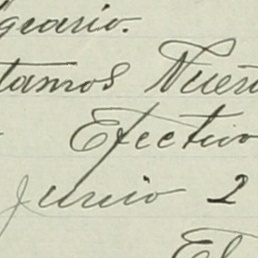 geario.
tamos Nuest
Efectivo
Junio 2